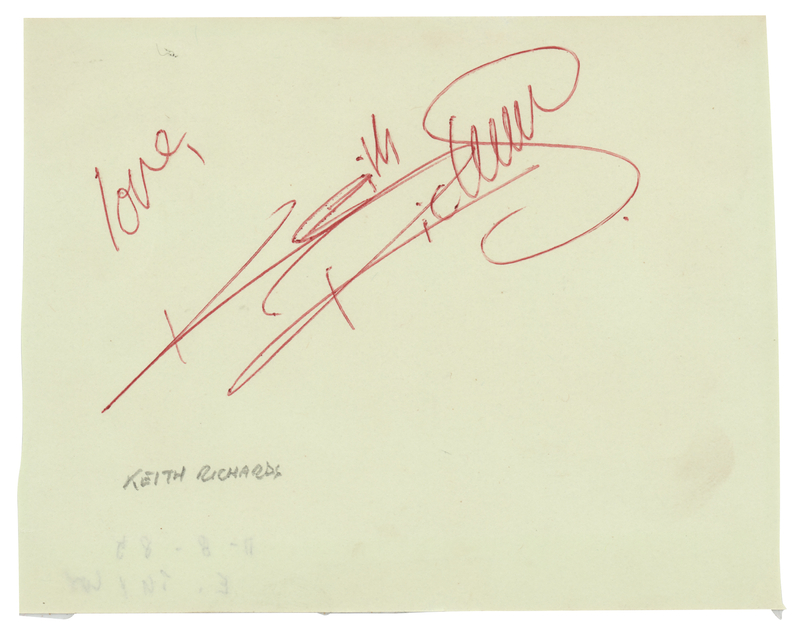 love,
Keith Richards
KEITH RICHARDS